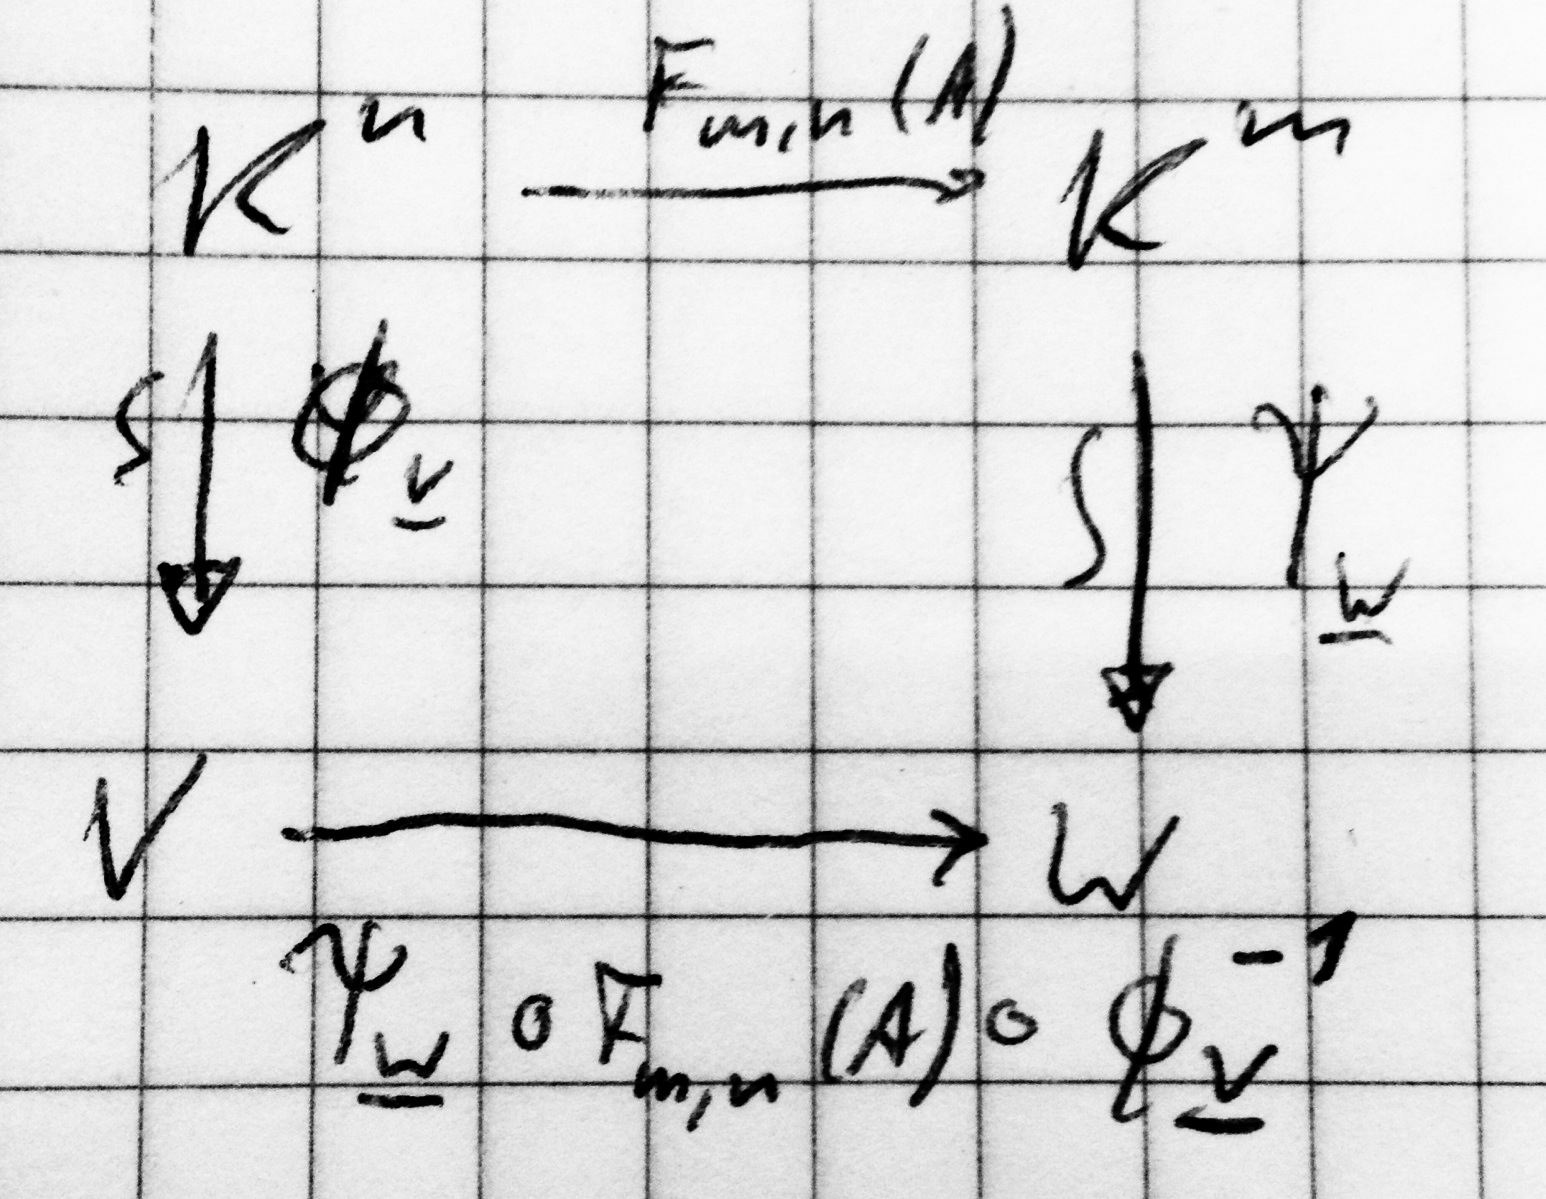 F_{m,n}(A)
K^n → K^m
∫ ↓ ϕ_{\underline{v}} ∫ ↓ Ψ_{\underline{w}}
V → W
Ψ_{\underline{w}} ∘ F_{m,n}(A) ∘ ϕ_{\underline{v}}^{-1}